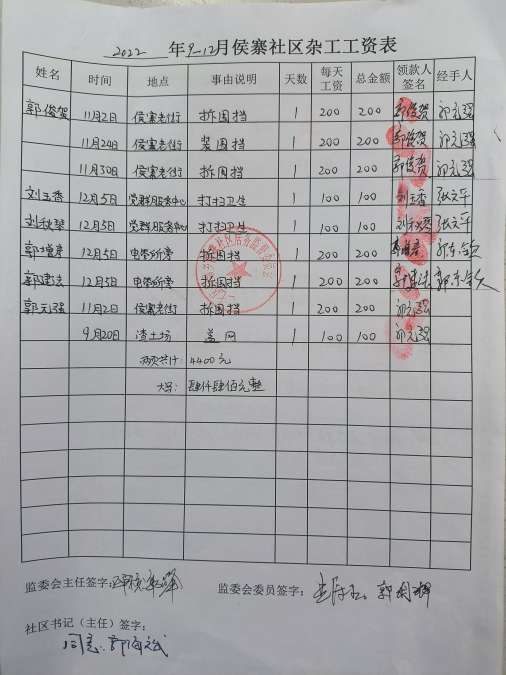 2022 年9-12月侯寨社区杂工工资表
姓名 时间 地点 事由说明 天数 每天工资 总金额 领款人签名 经手人
郭俊贺 11月2日 侯寨老街 拆围挡 1 200 200 郭俊贺 郭元强
11月24日 侯寨老街 装围挡 1 200 200 郭俊贺 郭元强
11月30日 侯寨老街 拆围挡 1 200 200 郭俊贺 郭元强
刘玉香 12月5日 党群服务中心 打扫卫生 1 100 100 刘玉香 张文平
刘秋琴 12月5日 党群服务中心 打扫卫生 1 100 100 刘秋琴 张文平
12月5日 电管所旁 拆围挡 1 200 200
郭建法 12月5日 电管所旁 拆围挡 1 200 200 郭建法
郭元强 11月2日 侯寨老街 拆围挡 1 200 200 郭元强
9月20日 渣土场 盖网 1 100 100 郭元强
两页共计: 4400元
大写: 肆仟肆佰元整
监委会主任签字:
监委会委员签字:
社区书记(主任)签字:
同意